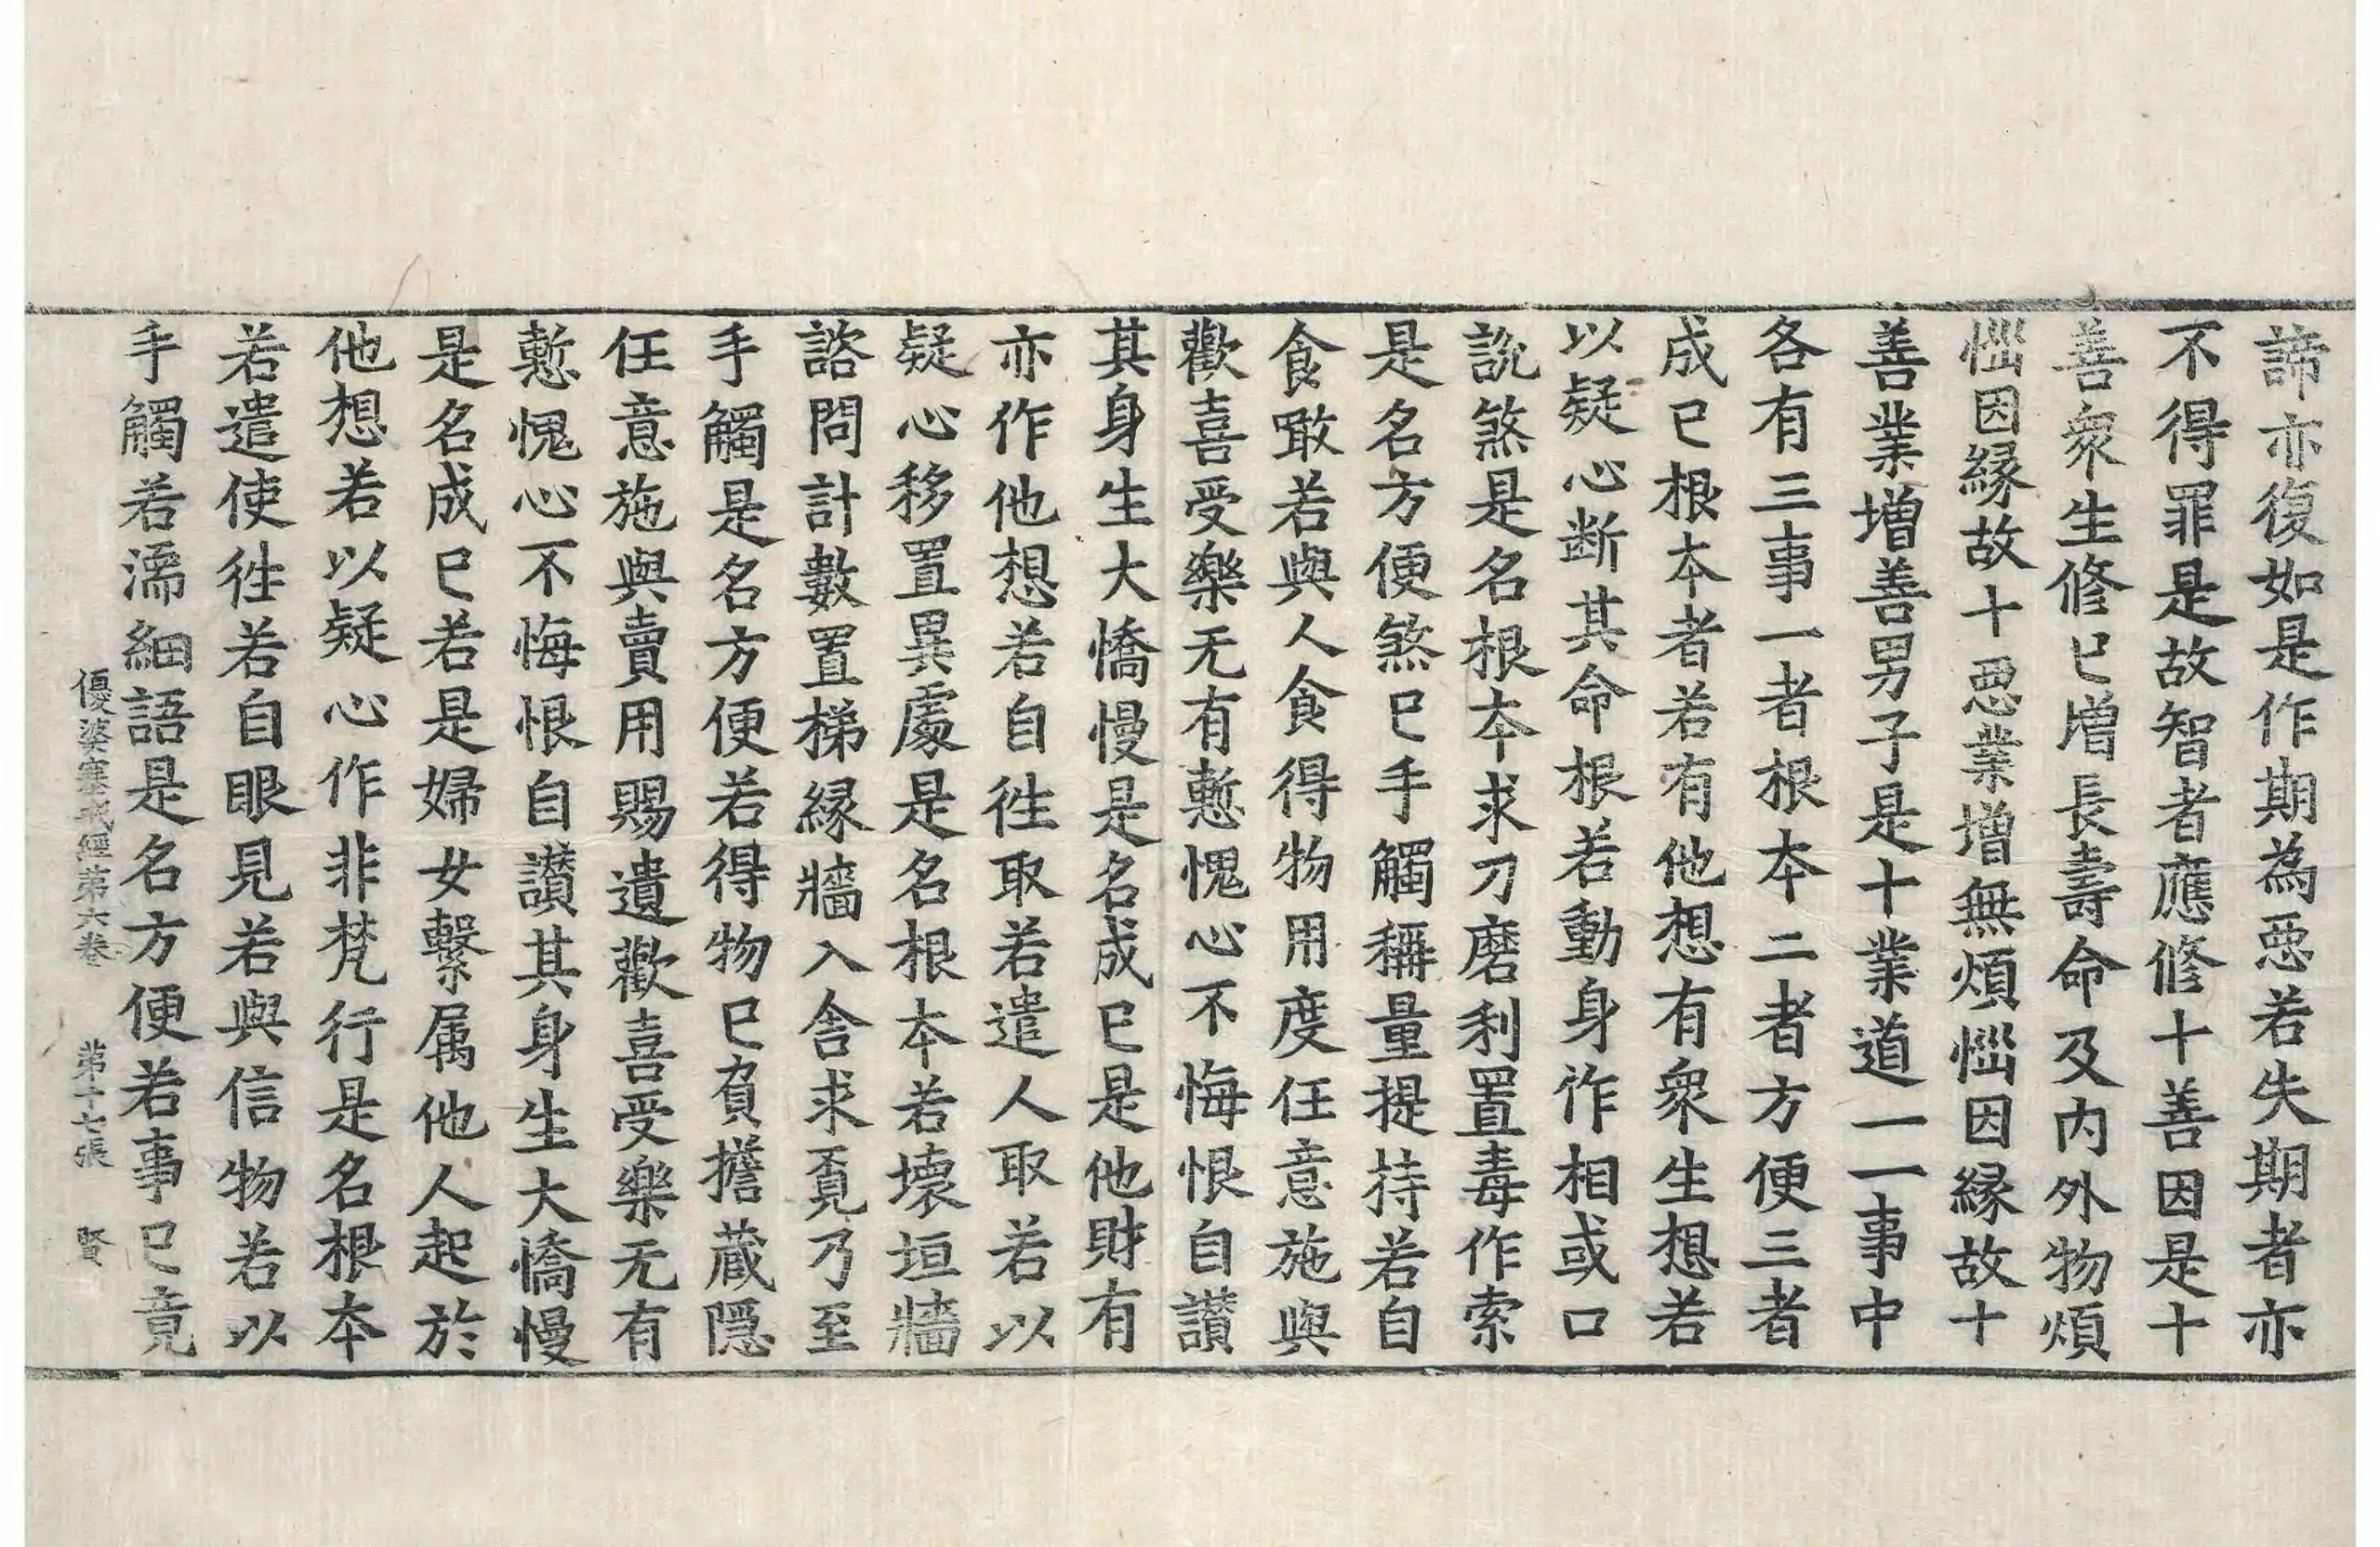 諦亦復如是作期為惡若失期者亦
不得罪是故智者應修十善因是十
善衆生修已增長壽命及內外物煩
惱因縁故十惡業增無煩惱因縁故十
善業增善男子是十業道一一事中
各有三事一者根本二者方便三者
成已根本者若有他想有衆生想若
以疑心断其命根若動身作相或口
說煞是名根本求刀磨利置毒作索
是名方便煞已手觸稱量提持若自
食噉若與人食得物用度任意施與
歡喜受樂无有慙愧心不悔恨自讃
其身生大憍慢是名成已是他財有
亦作他想若自往取若遣人取若以
疑心移置異處是名根本若壞垣牆
諮問計數置梯縁牆入舍求覓乃至
手觸是名方便若得物已負擔蔵隱
任意施與賣用賜遺歡喜受樂无有
慙愧心不悔恨自讃其身生大憍慢
是名成已若是婦女繫属他人起於
他想若以疑心作非梵行是名根本
若遣使往若自眼見若與信物若以
手觸若濡細語是名方便若事已竟
優婆塞戒經第六卷 第十七張 賢